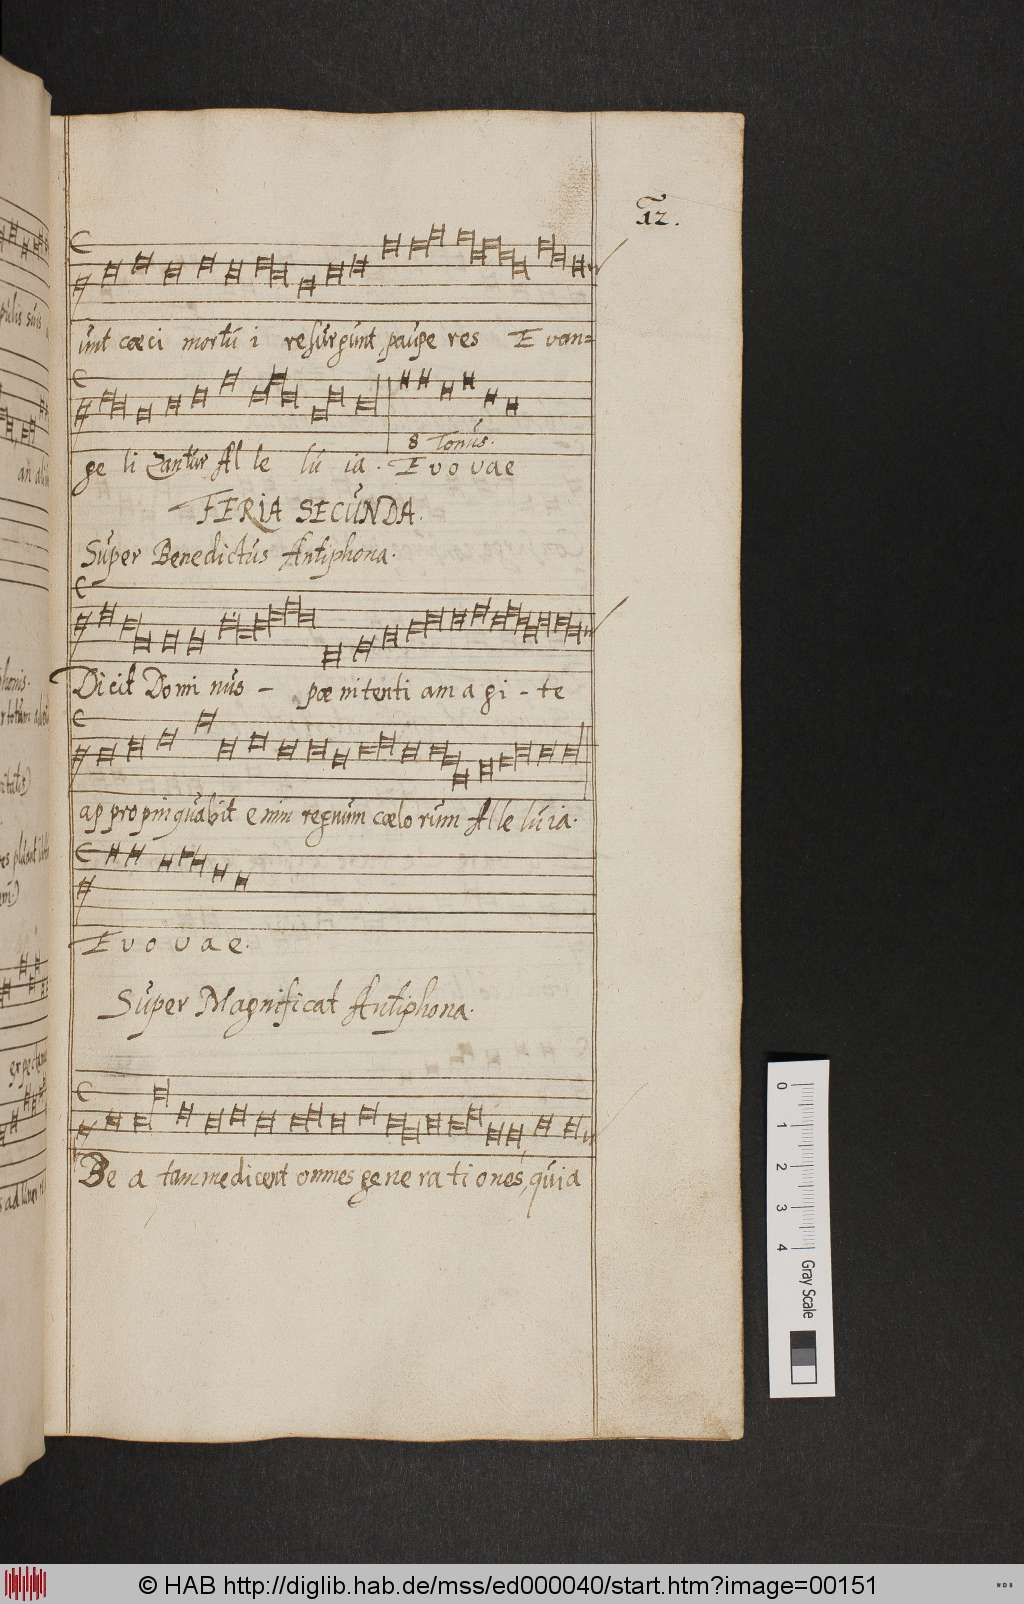 12.
unt cœci mortu i resurgunt, paupe res Evan=
ge li zantur Al le lu ia. Evovae
8 Tonus.
FERIA SECUNDA.
Super Benedictus Antiphona.
Dicit Domi nus – pœnitenti am agi - te
ap propinquabit enim regnum cœlo rum Alle luia.
Evovae.
Super Magnificat Antiphona.
Be a tam me dicent omnes ge ne ra ti ones, quia
0 1 2 3 4 Gray Scale
© HAB http://diglib.hab.de/mss/ed000040/start.htm?image=00151